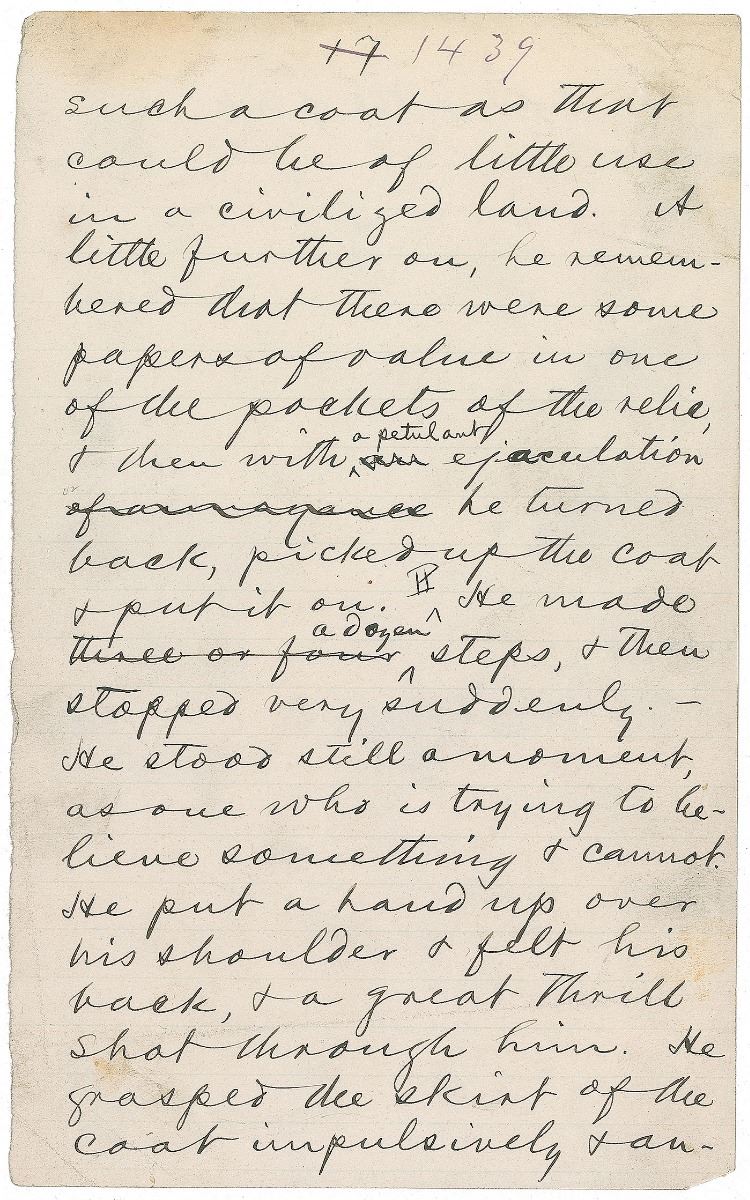 17 1439
such a coat as that
could be of little use
in a civilized land. A
little further on, he remem-
bered that there were some
papers of value in one
of the pockets of the relic,
a petulant
& then with ^ an ejaculation
of annoyance he turned
back, picked up the coat
& put it on. ¶ ^ He made
a dozen
three or four ^ steps, & then
stopped very suddenly. —
He stood still a moment,
as one who is trying to be-
lieve something & cannot.
He put a hand up over
his shoulder & felt his
back, & a great thrill
shot through him. He
grasped the skirt of the
coat impulsively & an-